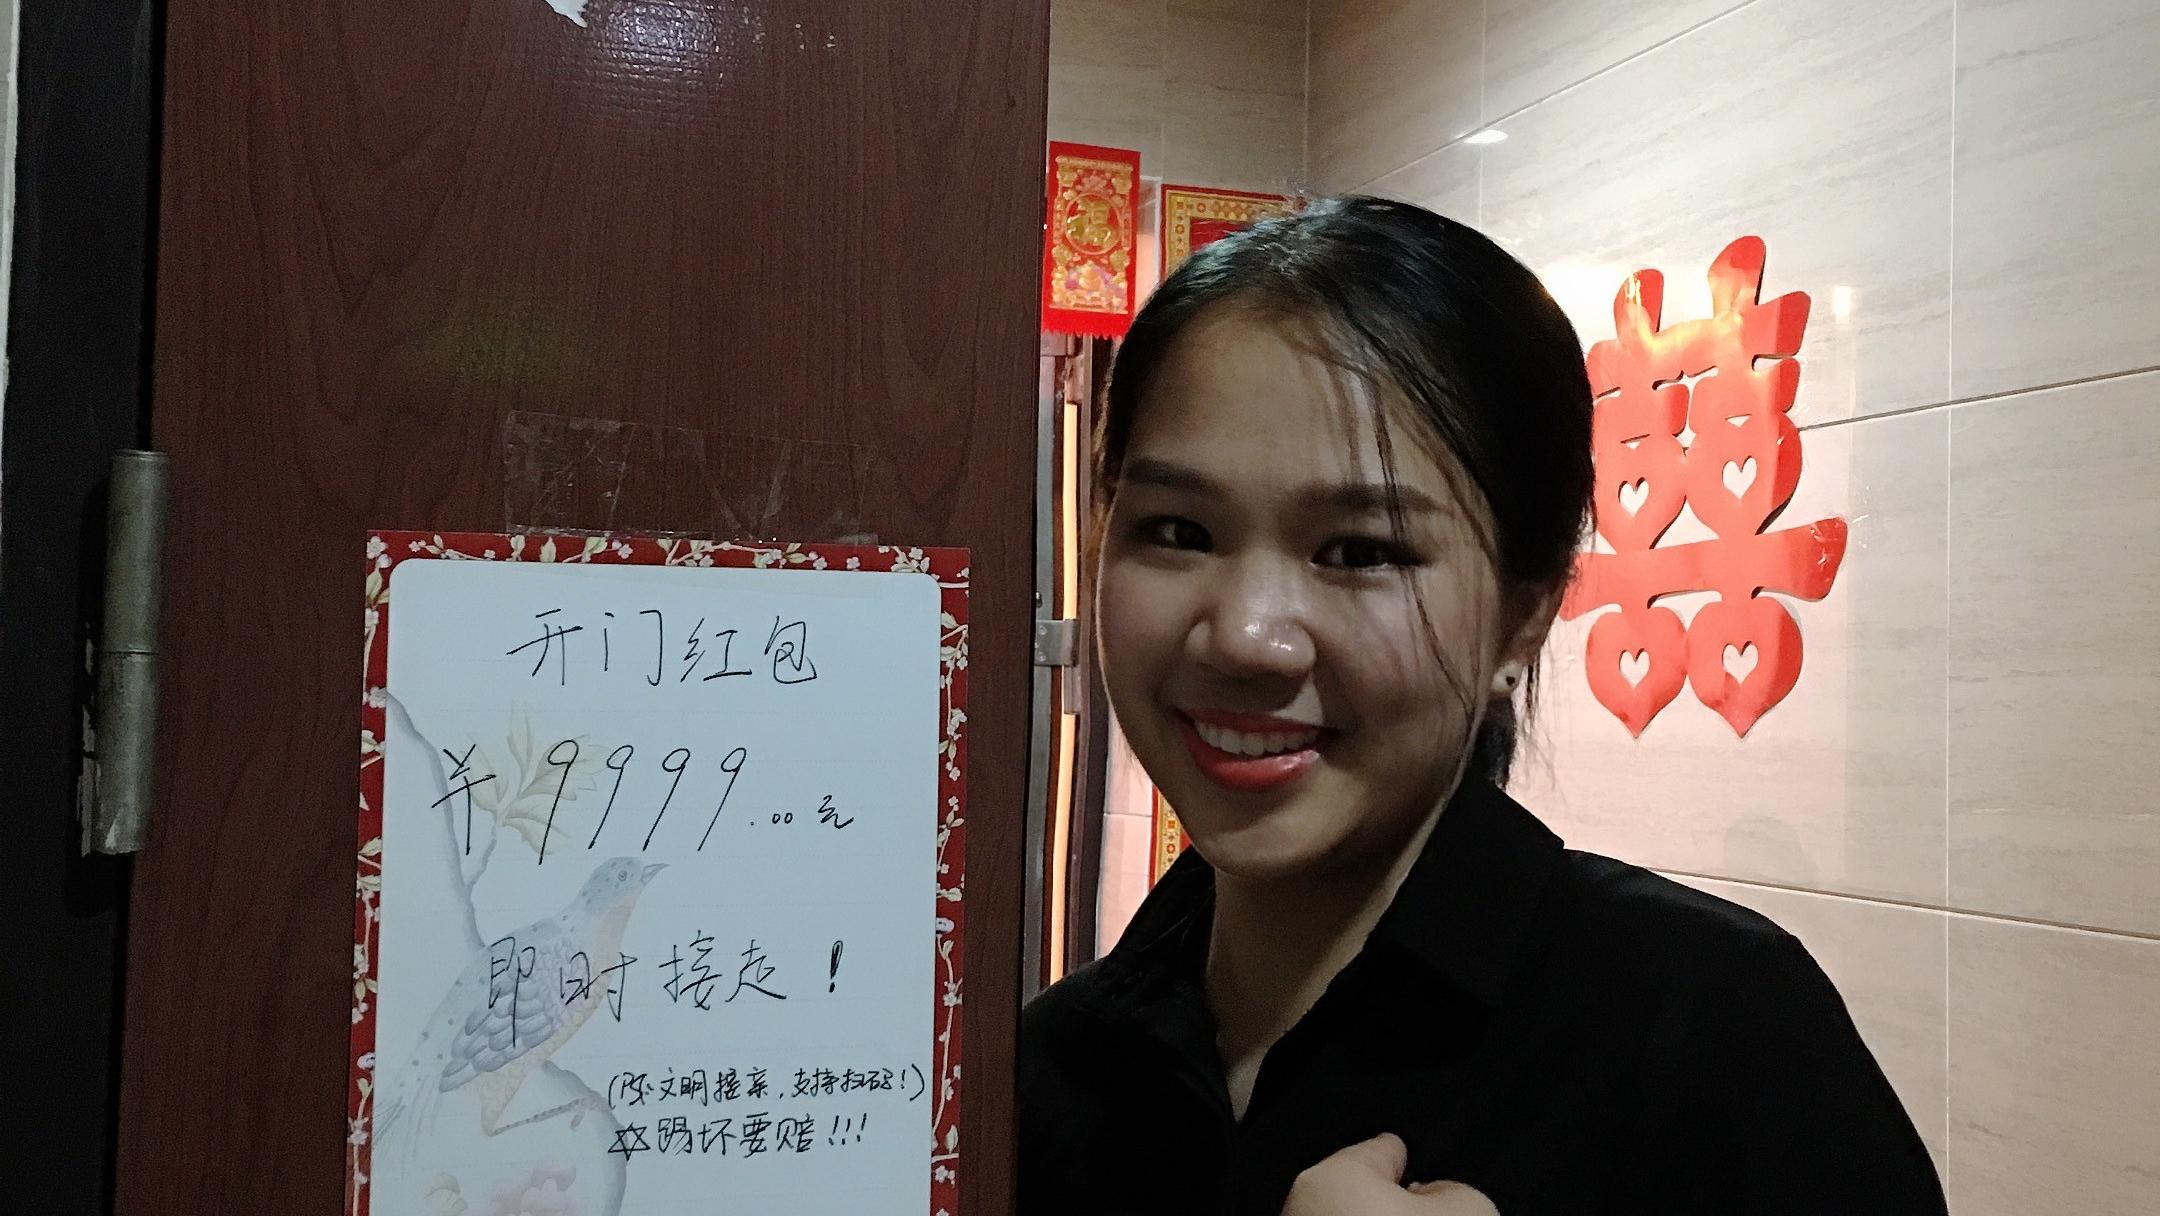 开门红包
¥9999.00元
即时接走！
(限文明接亲,支持扫码!)
✡踢坏要赔!!!
福
囍